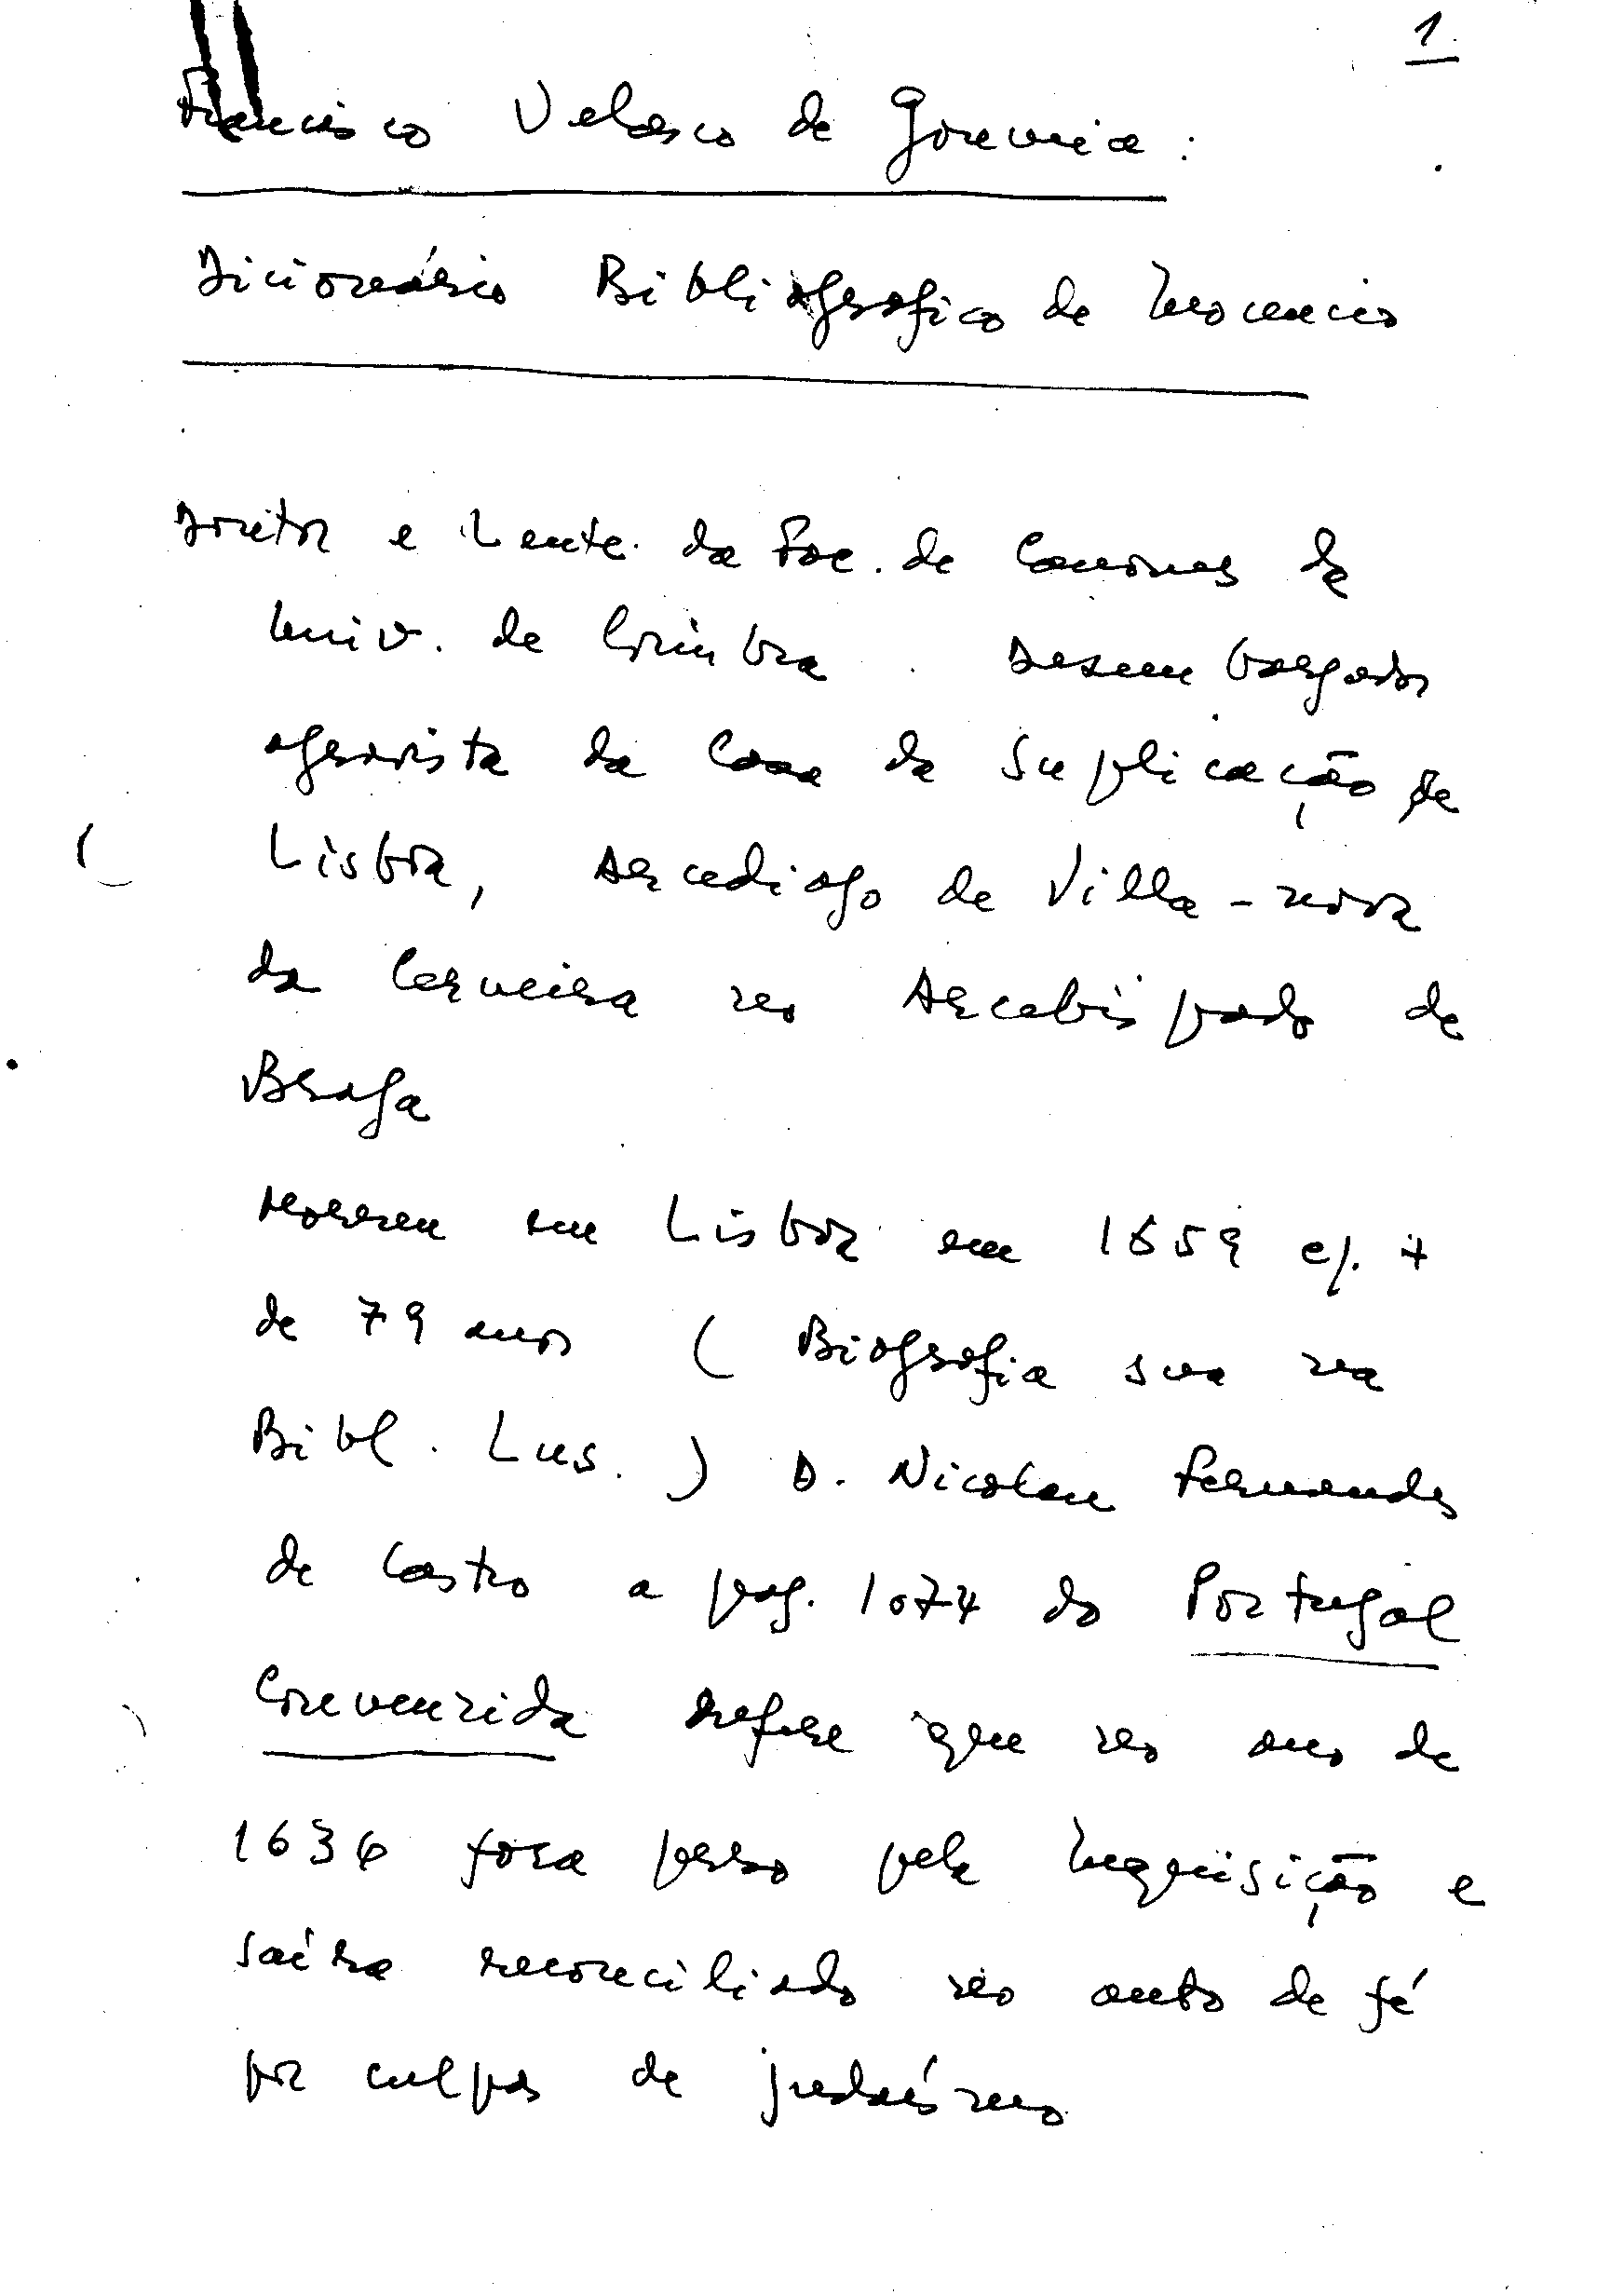 1.
Francisco Velasco de Gouveia:
Dicionário Bibliografico de Inocencio
Doutor e Lente da Fac. de Canones da
Univ. de Coimbra. Desembargador
agravista da Casa da Suplicação de
Lisboa, Arcediago de Villa-nova
da Cerveira no Arcebispado de
Braga
Morreu em Lisboa em 1659 c/. +
de 79 anos (Biografia sua na
Bibl. Lus.) D. Nicolau Fernandes
de Castro a pag. 1074 do Portugal
Convenzida refere que no ano de
1636 fora preso pela Inquisição e
saíra reconciliado no auto de fé
por culpas de judaísmo